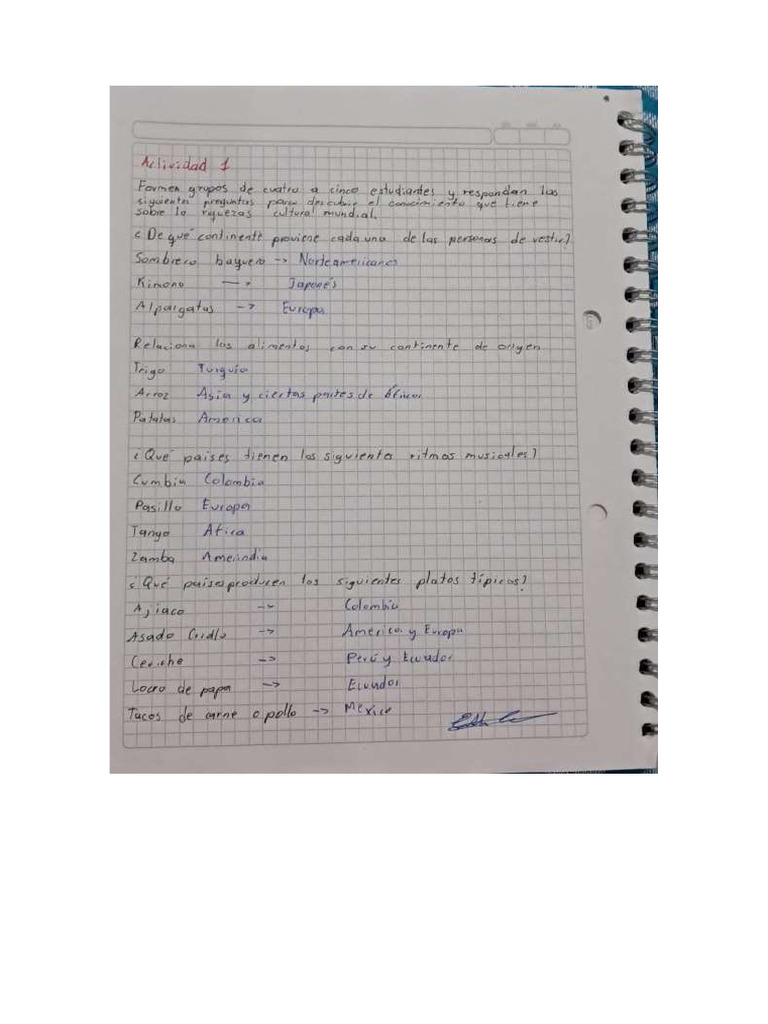 Actividad 1
Formen grupos de cuatro a cinco estudiantes y respondan las
siguientes preguntas para descubrir el conocimiento que tiene
sobre la riquezas cultural mundial.
¿De qué continente proviene cada una de las personas de vestir?
Sombrero baquero -> Norteamericanos
Kimono -> Japonés
Alpargatas -> Europa
Relaciona los alimentos con su continente de origen
Trigo Turquía
Arroz Asia y ciertas partes de África
Patatas America
¿Qué paises tienen los siguientes ritmos musicales?
Cumbia Colombia
Pasillo Europa
Tango Africa
Zamba Amerindia
¿Qué paises producen los siguientes platos típicos?
Ajiaco -> Colombia
Asado Criollo -> America y Europa
Ceviche -> Perú y Ecuador
Locro de papa -> Ecuador
Tacos de carne o pollo -> Mexico